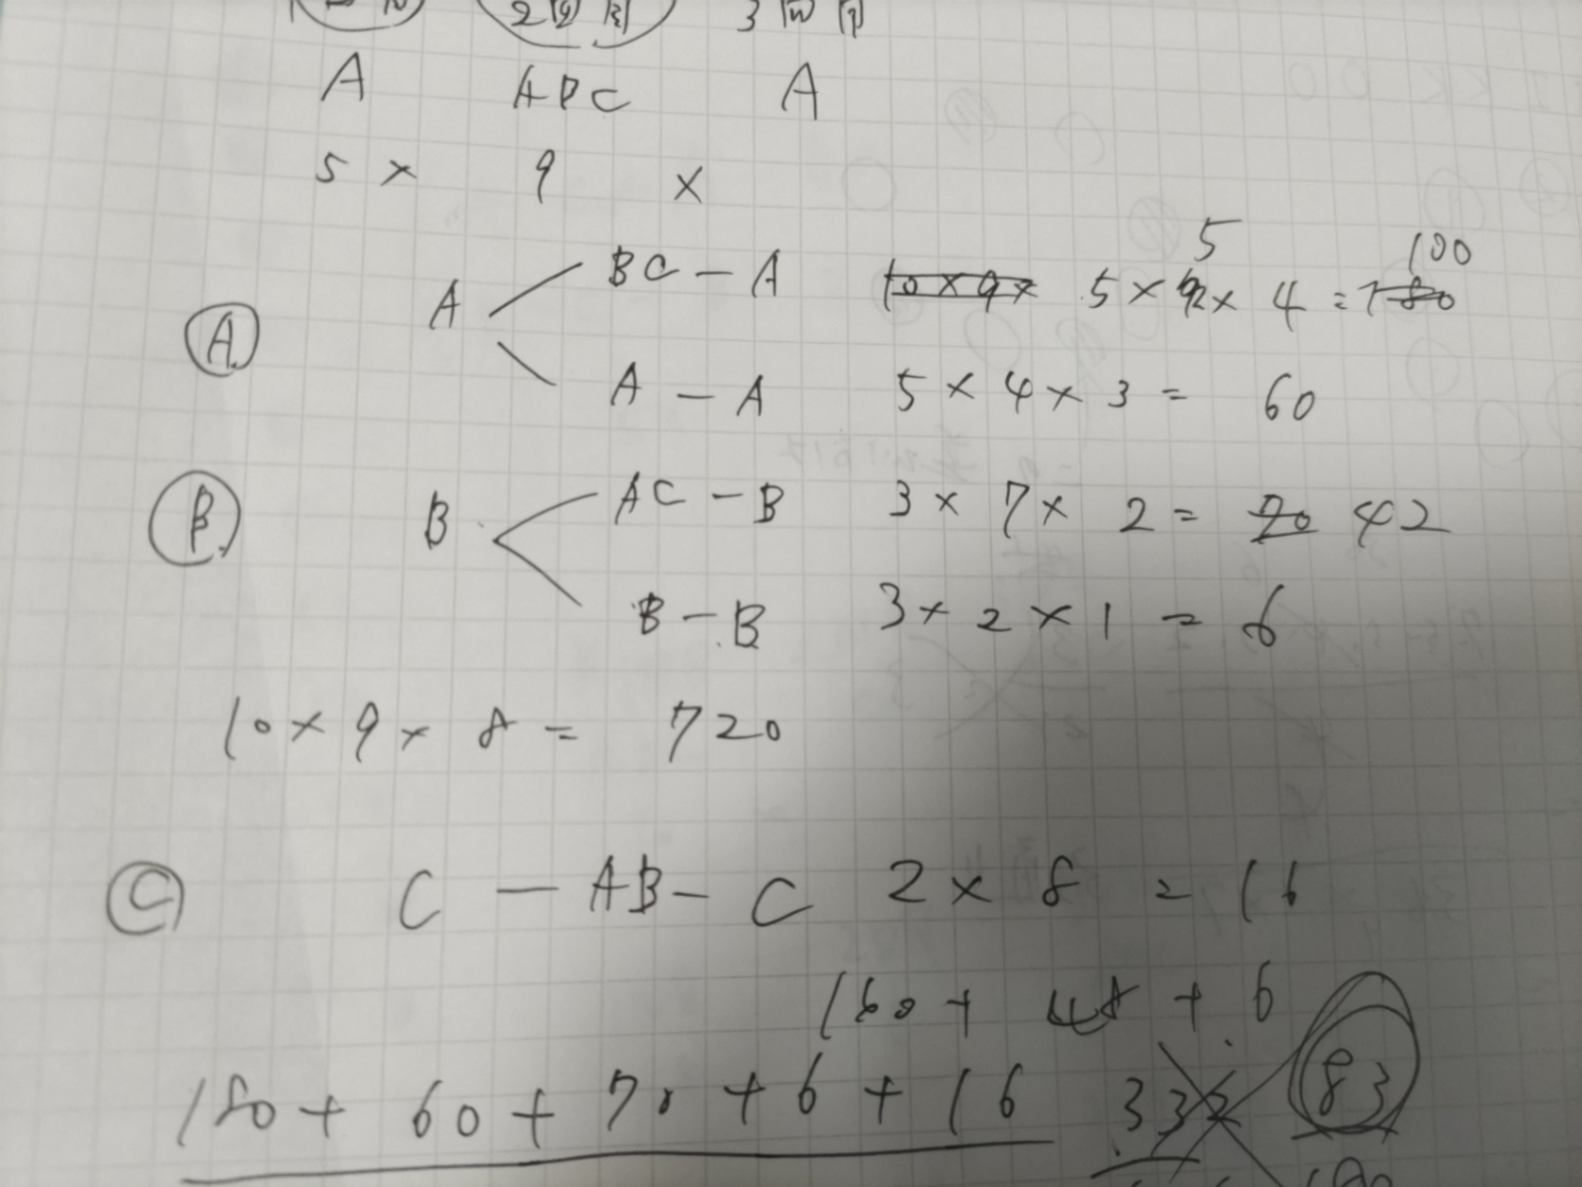 2回目 3回目
A ABC A
5 × 9 ×
5 100
A BC - A 10×9× 5×9× 4 = 180
Ⓐ
A - A 5 × 4 × 3 = 60
Ⓑ B AC - B 3 × 7 × 2 = 70 42
B - B 3 × 2 × 1 = 6
10 × 9 × 8 = 720
Ⓒ C - AB - C 2 × 8 = 16
160 + 48 + 6
180 + 60 + 70 + 6 + 16 332 83
180